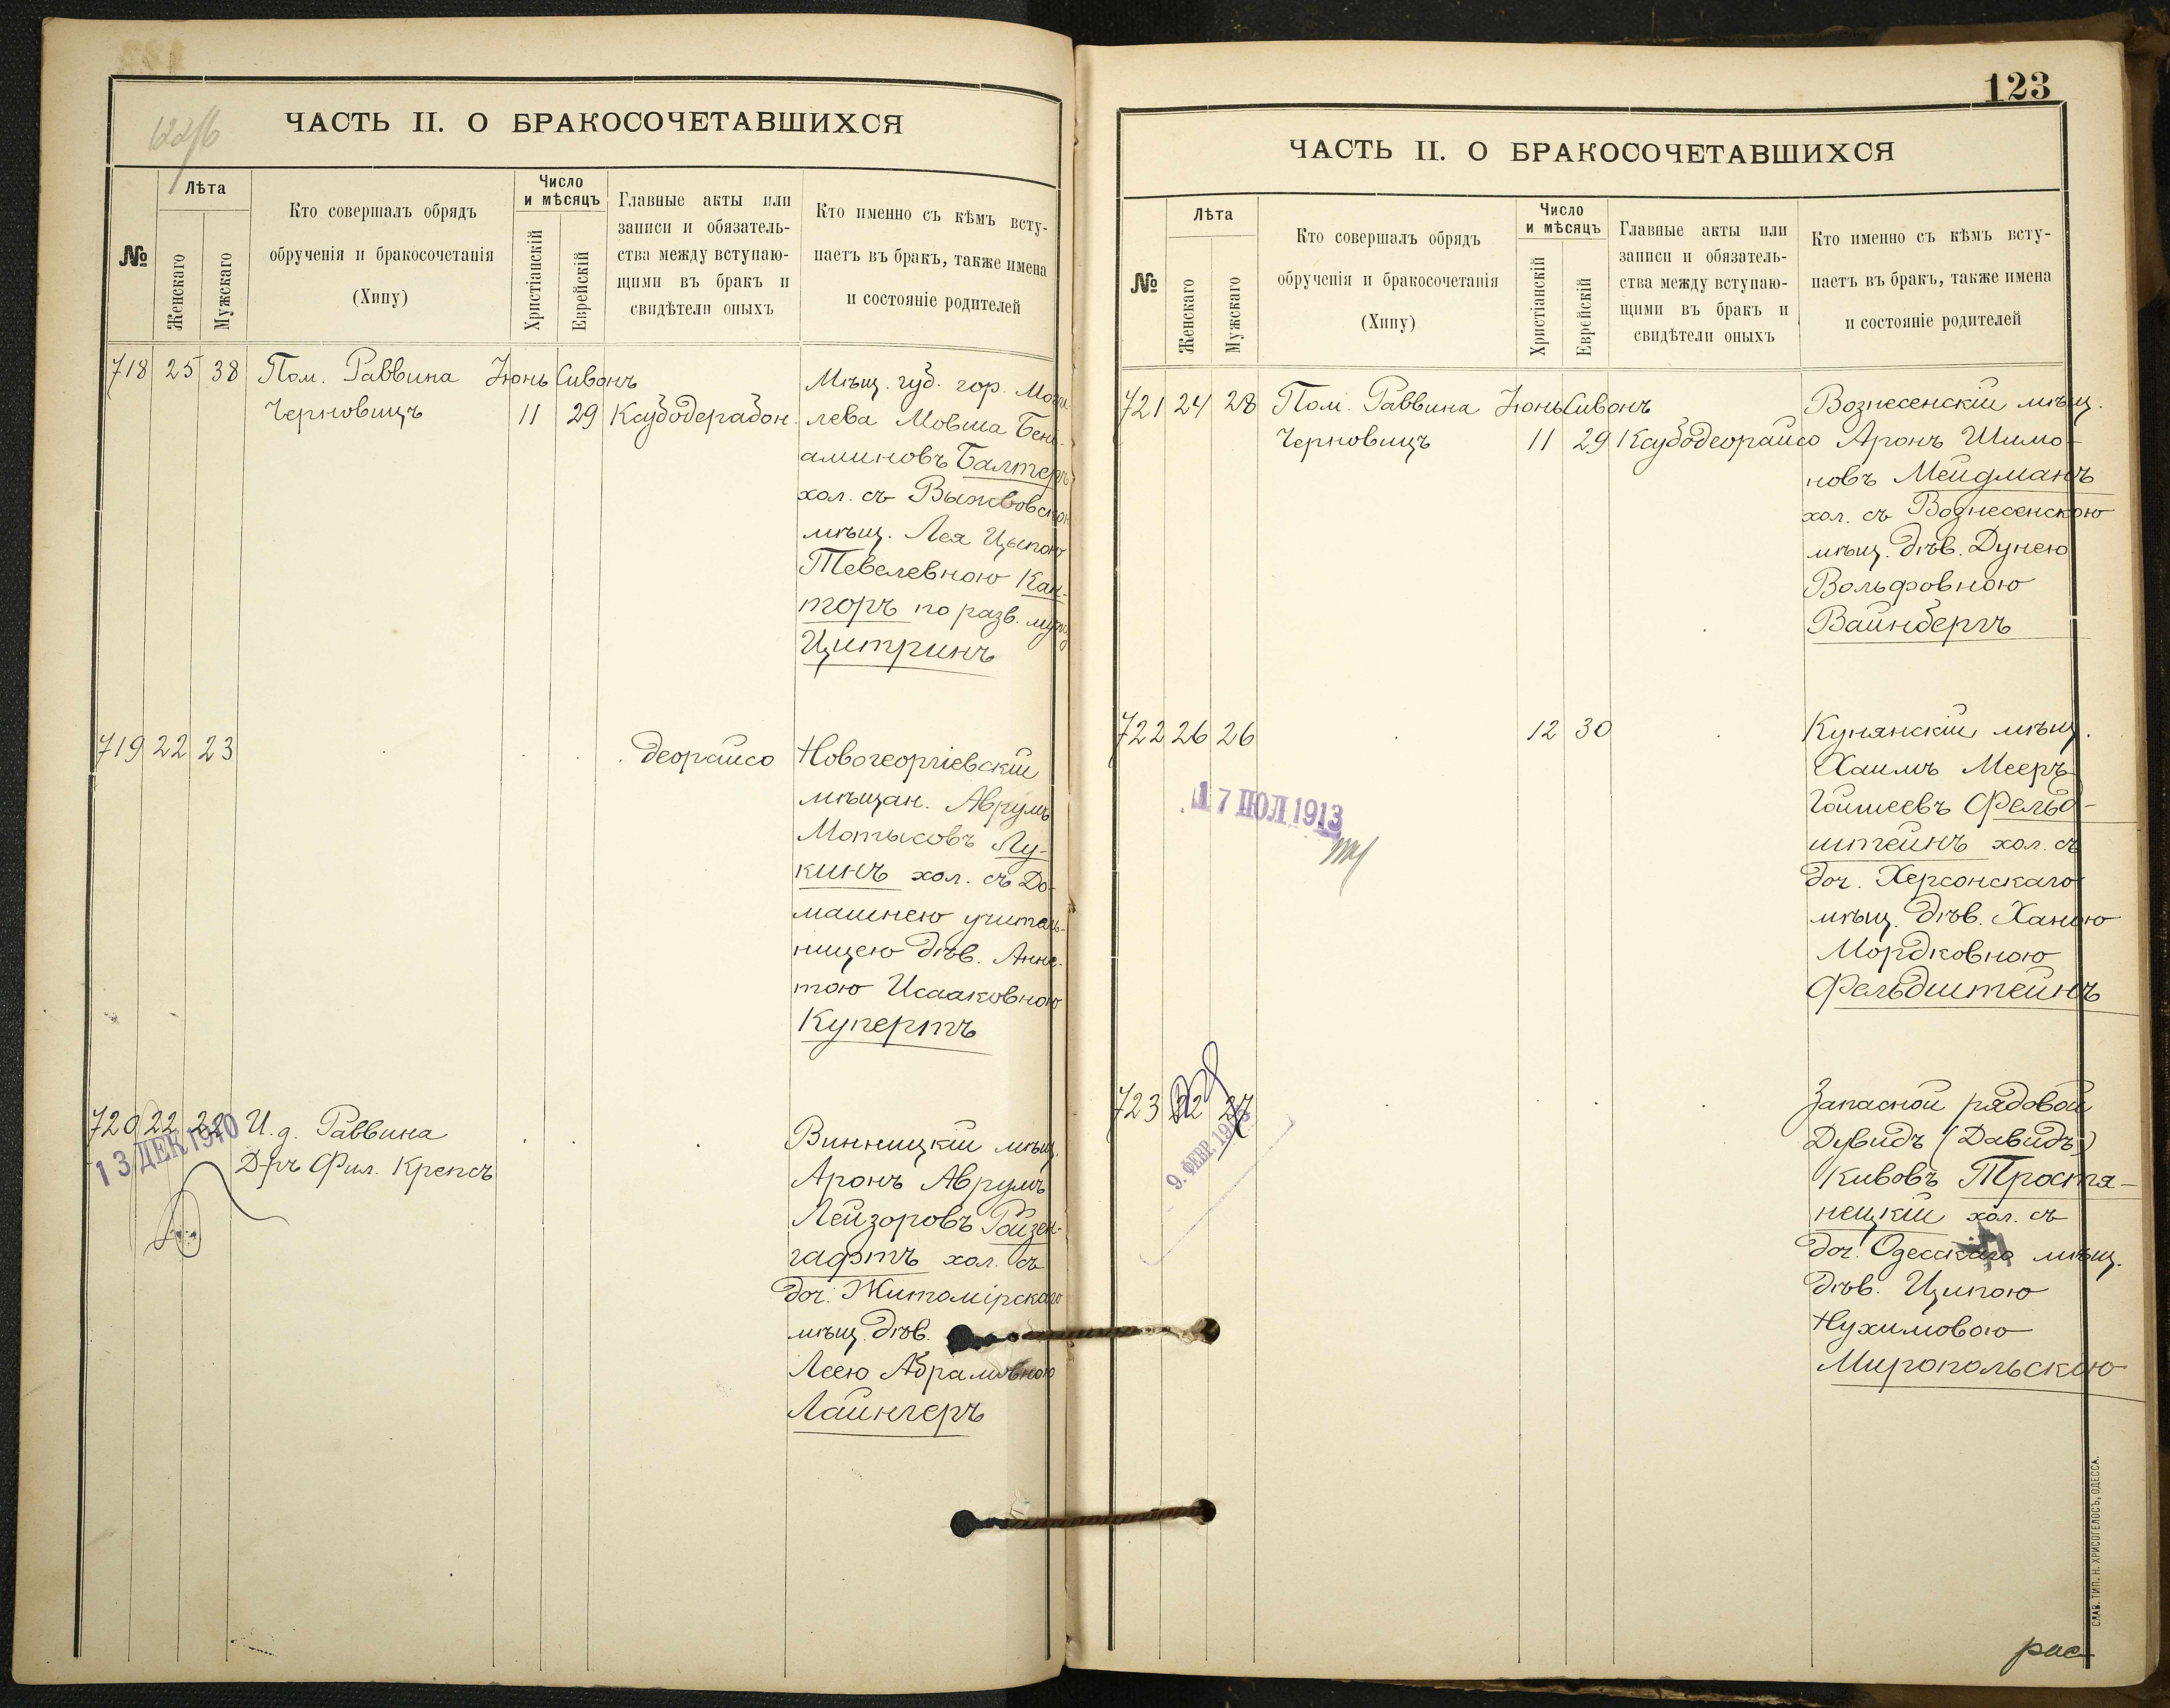 ЧАСТЬ II. О БРАКОСОЧЕТАВШИХСЯ
№
Лѣта
Женскаго
Мужскаго
Кто совершалъ обрядъ
обрученія и бракосочетанія
(Хипу)
Число
и мѣсяцъ
Христіанскій
Еврейскій
Главные акты или
записи и обязатель-
ства между вступаю-
щими въ бракъ и
свидѣтели оныхъ
Кто именно съ кѣмъ всту-
паетъ въ бракъ, также имена
и состояніе родителей
718 25 38 Пом. Раввина Іюнь Сивонъ
Черновицъ 11 29 Ксубодерабон.
Мѣщ. губ. гор. Моги-
лева Мовша Бень-
аминовъ Балтеръ
хол. съ Выжвовскою
мѣщ. Лея Цыпою
Тевелевною Кан-
торъ по разв. мужу
Цитринъ
719 22 23 деорайсо
Новогеоргіевскій
мѣщан. Аврумъ
Мотысовъ Лу-
кинъ хол. съ До-
машнею учитель-
ницею дѣв. Анне-
тою Исааковною
Купертъ
720 22 22 И. д. Раввина
Д-ръ Фил. Крепсъ
13 ДЕК 1910
Винницкій мѣщ.
Аронъ Аврумъ
Лейзоровъ Ройзен-
гафтъ хол. съ
доч. Житомірскаго
мѣщ. дѣв.
Леею Абрамовною
Лайнгеръ
123
ЧАСТЬ II. О БРАКОСОЧЕТАВШИХСЯ
№
Лѣта
Женскаго
Мужскаго
Кто совершалъ обрядъ
обрученія и бракосочетанія
(Хипу)
Число
и мѣсяцъ
Христіанскій
Еврейскій
Главные акты или
записи и обязатель-
ства между вступаю-
щими въ бракъ и
свидѣтели оныхъ
Кто именно съ кѣмъ всту-
паетъ въ бракъ, также имена
и состояніе родителей
721 24 28 Пом. Раввина Іюнь Сивонъ
Черновицъ 11 29 Ксубодеорайсо
Вознесенскій мѣщ.
Аронъ Шимо-
новъ Мейдманъ
хол. съ Вознесенскою
мѣщ. дѣв. Дунею
Вольфовною
Вайнбергъ
722 26 26 12 30
17 ІЮЛ 1913
Купянскій мѣщ.
Хаимъ Мееръ
Гойшеевъ Фельд-
штейнъ хол. съ
доч. Херсонскаго
мѣщ. дѣв. Ханою
Мордковною
Фельдштейнъ
723 22 27
9. ФЕВР.
Запасной рядовой
Дувидъ (Давидъ)
Кивовъ Тростя-
нецкій хол. съ
доч. Одесскаго мѣщ.
дѣв. Ципою
Нухимовою
Миропольскою
СЛАВ. ТИП. Н. ХРИСОГЕЛОСЪ, ОДЕССА.